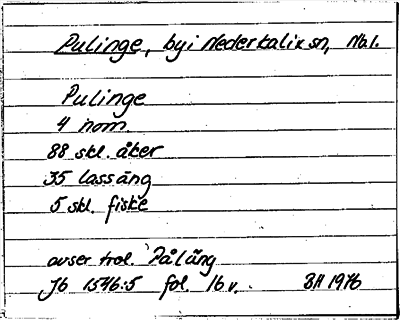 Pulinge, by i Nederkalix sn, Nal.
Pulinge
4 nom.
88 skl. åker
35 lass äng
5 skl. fiske
avser trol. Påläng
Jb 1546:5 fol. 16 v. BH 1976